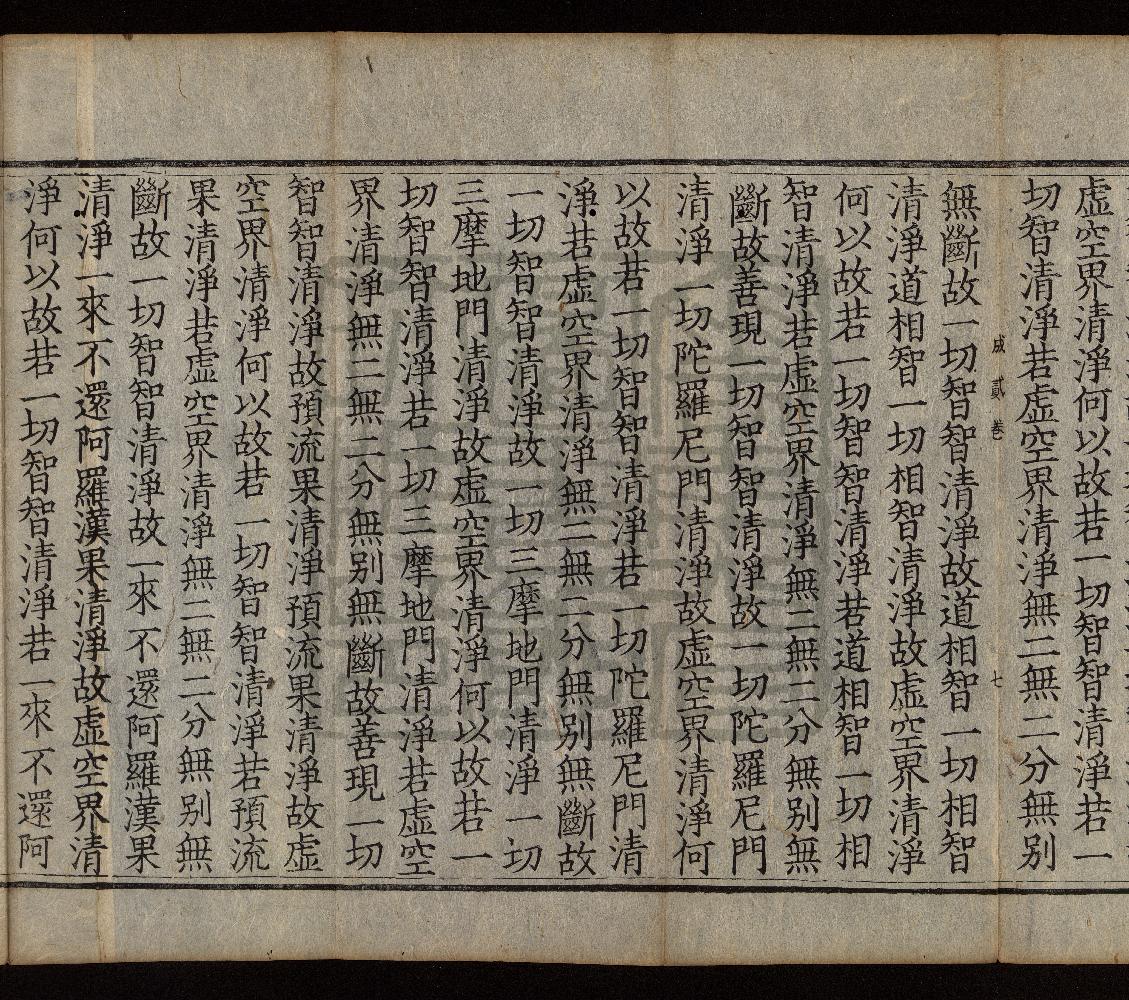 虛空界清淨何以故若一切智智清淨若一
切智清淨若虛空界清淨無二無二分無別
成 貳卷 七
無斷故一切智智清淨故道相智一切相智
清淨道相智一切相智清淨故虛空界清淨
何以故若一切智智清淨若道相智一切相
智清淨若虛空界清淨無二無二分無别無
斷故善現一切智智清淨故一切陀羅尼門
清淨一切陀羅尼門清淨故虛空界清淨何
以故若一切智智清淨若一切陀羅尼門清
淨若虛空界清淨無二無二分無别無斷故
一切智智清淨故一切三摩地門清淨一切
三摩地門清淨故虛空界清淨何以故若一
切智智清淨若一切三摩地門清淨若虛空
界清淨無二無二分無别無斷故善現一切
智智清淨故預流果清淨預流果清淨故虛
空界清淨何以故若一切智智清淨若預流
果清淨若虛空界清淨無二無二分無别無
斷故一切智智清淨故一來不還阿羅漢果
清淨一來不還阿羅漢果清淨故虛空界清
淨何以故若一切智智清淨若一來不還阿